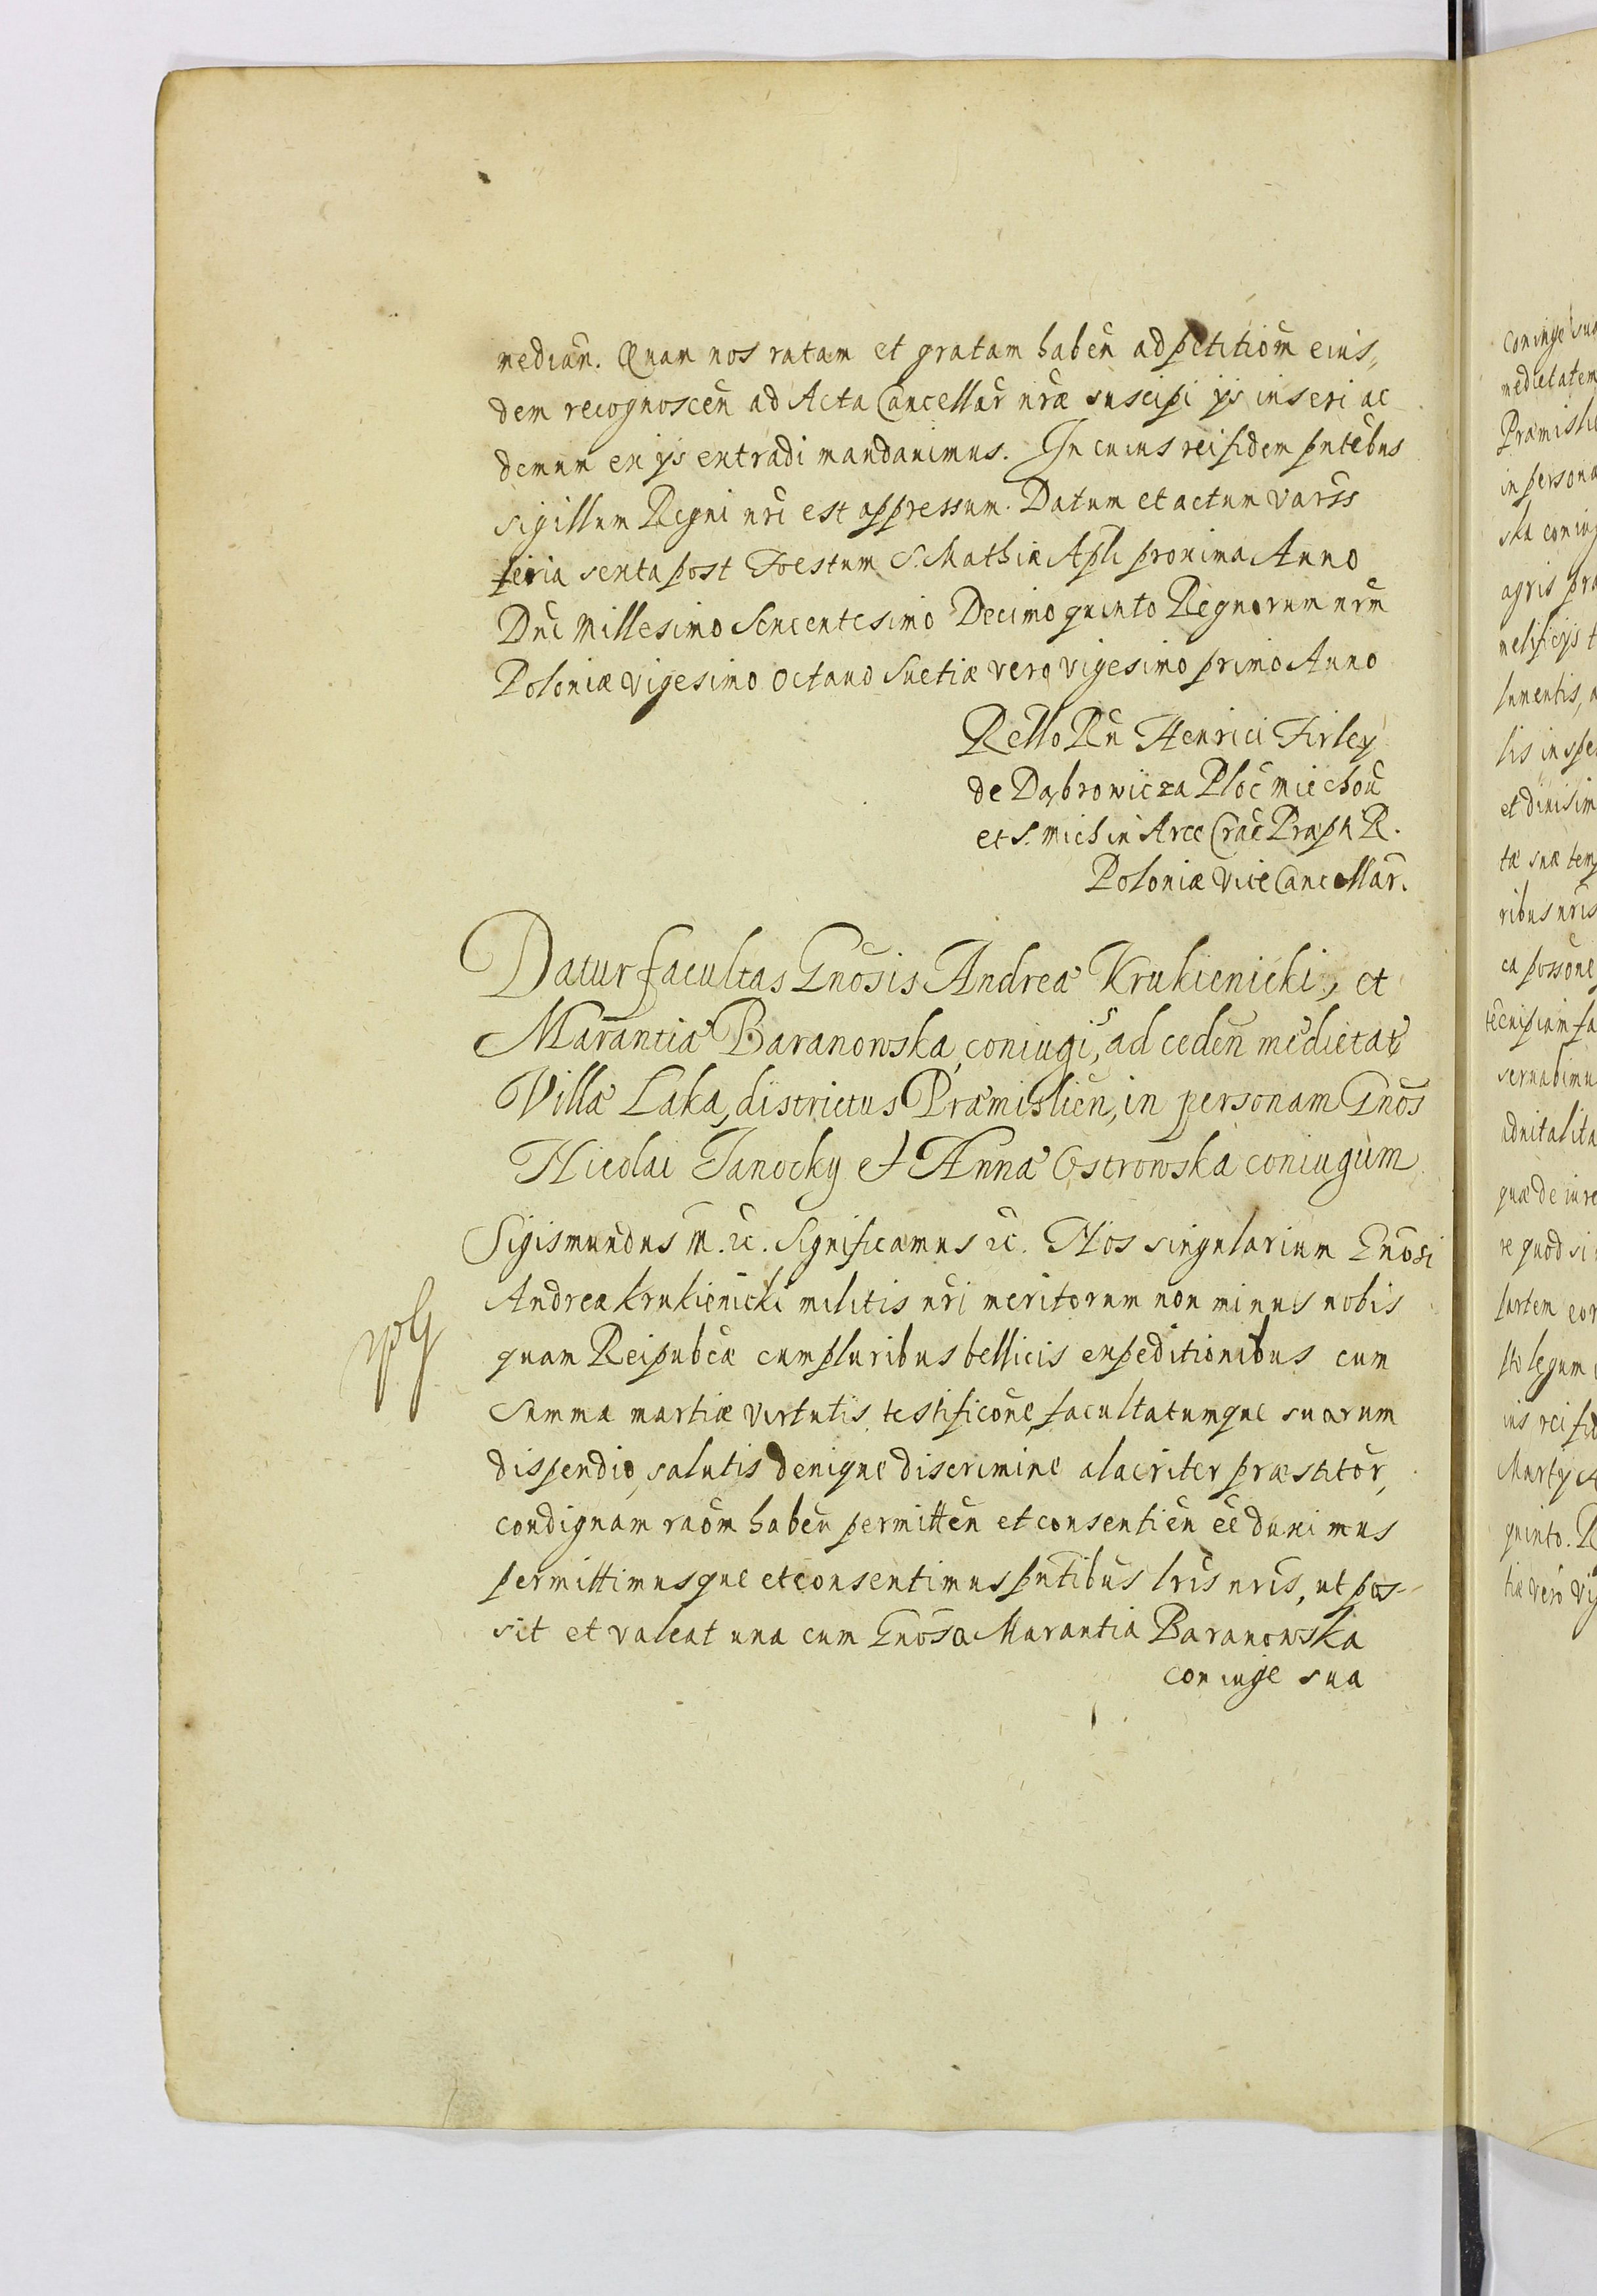 median̄. Quam nos ratam et gratam haben̄ ad petitiōm eius,,
dem recognoscen̄ ad Acta Cancellar̄ nrǣ suscipi ijs inseri ac
demum ex ijs extradi mandauimus. In cuius rei fidem pntēbus
sigillum Regni nrī est appressum. Datum et actum Varss̄
feria sexta post Foestum S. Mathiæ Apl̄i proxima Anno
Dnī Millesimo Sexcentesimo Decimo quinto Regnorum nrm̄
Poloniæ vigesimo octauo Suetiæ vero vigesimo primo Anno
Rell̄o Rn̄ Henrici Firley
de Dąbrowicza Ploc̄ Miechou̅
et S. Mich in Arce Crac̄ Præpti R.
Poloniæ Vice Cancellar̄.
Datur facultas Gnōsis Andreæ Krukienicki, et
Marantiæ Baranowska, coniugi, ad ceden̄ medietatē
Villæ Łąka, districtus Præmislien̄, in personam Gnōs
Nicolai Janocky et Annæ Ostrowska coniugum
Sigismundus III. etc. Significamus etc. Nos singularium Gnōsi
Andreæ Krukienicki militis nrī meritorum non minus nobis
quam Reipub̄cæ cum pluribus bellicis expeditionibus cum
summa martiæ virtutis testificōne, facultatumque suarum
dispendio, salutis denique discrimine alacriter præstitor̄,
condignam raōm haben̄ permitten̄ et consentien̄ eē̄ duximus
permittimusque et consentimus pntībus lrīs nrīs, ut pos-
sit et valeat una cum Gnōsa Marantia Baranowska
coniuge sua
coniuge sua
medietatem
Præmisli
in persona
ska coniug
agris pra
melificijs t
lumentis, a
lis in spe
et diuisim
tæ suæ temp
ribus nrīs
ea possōne
seruabimu
aduitalita
quæ de iure
re quod si
sortem eor
sto legum
ius rei fid
Martij A
quinto. R
tiæ vero vig